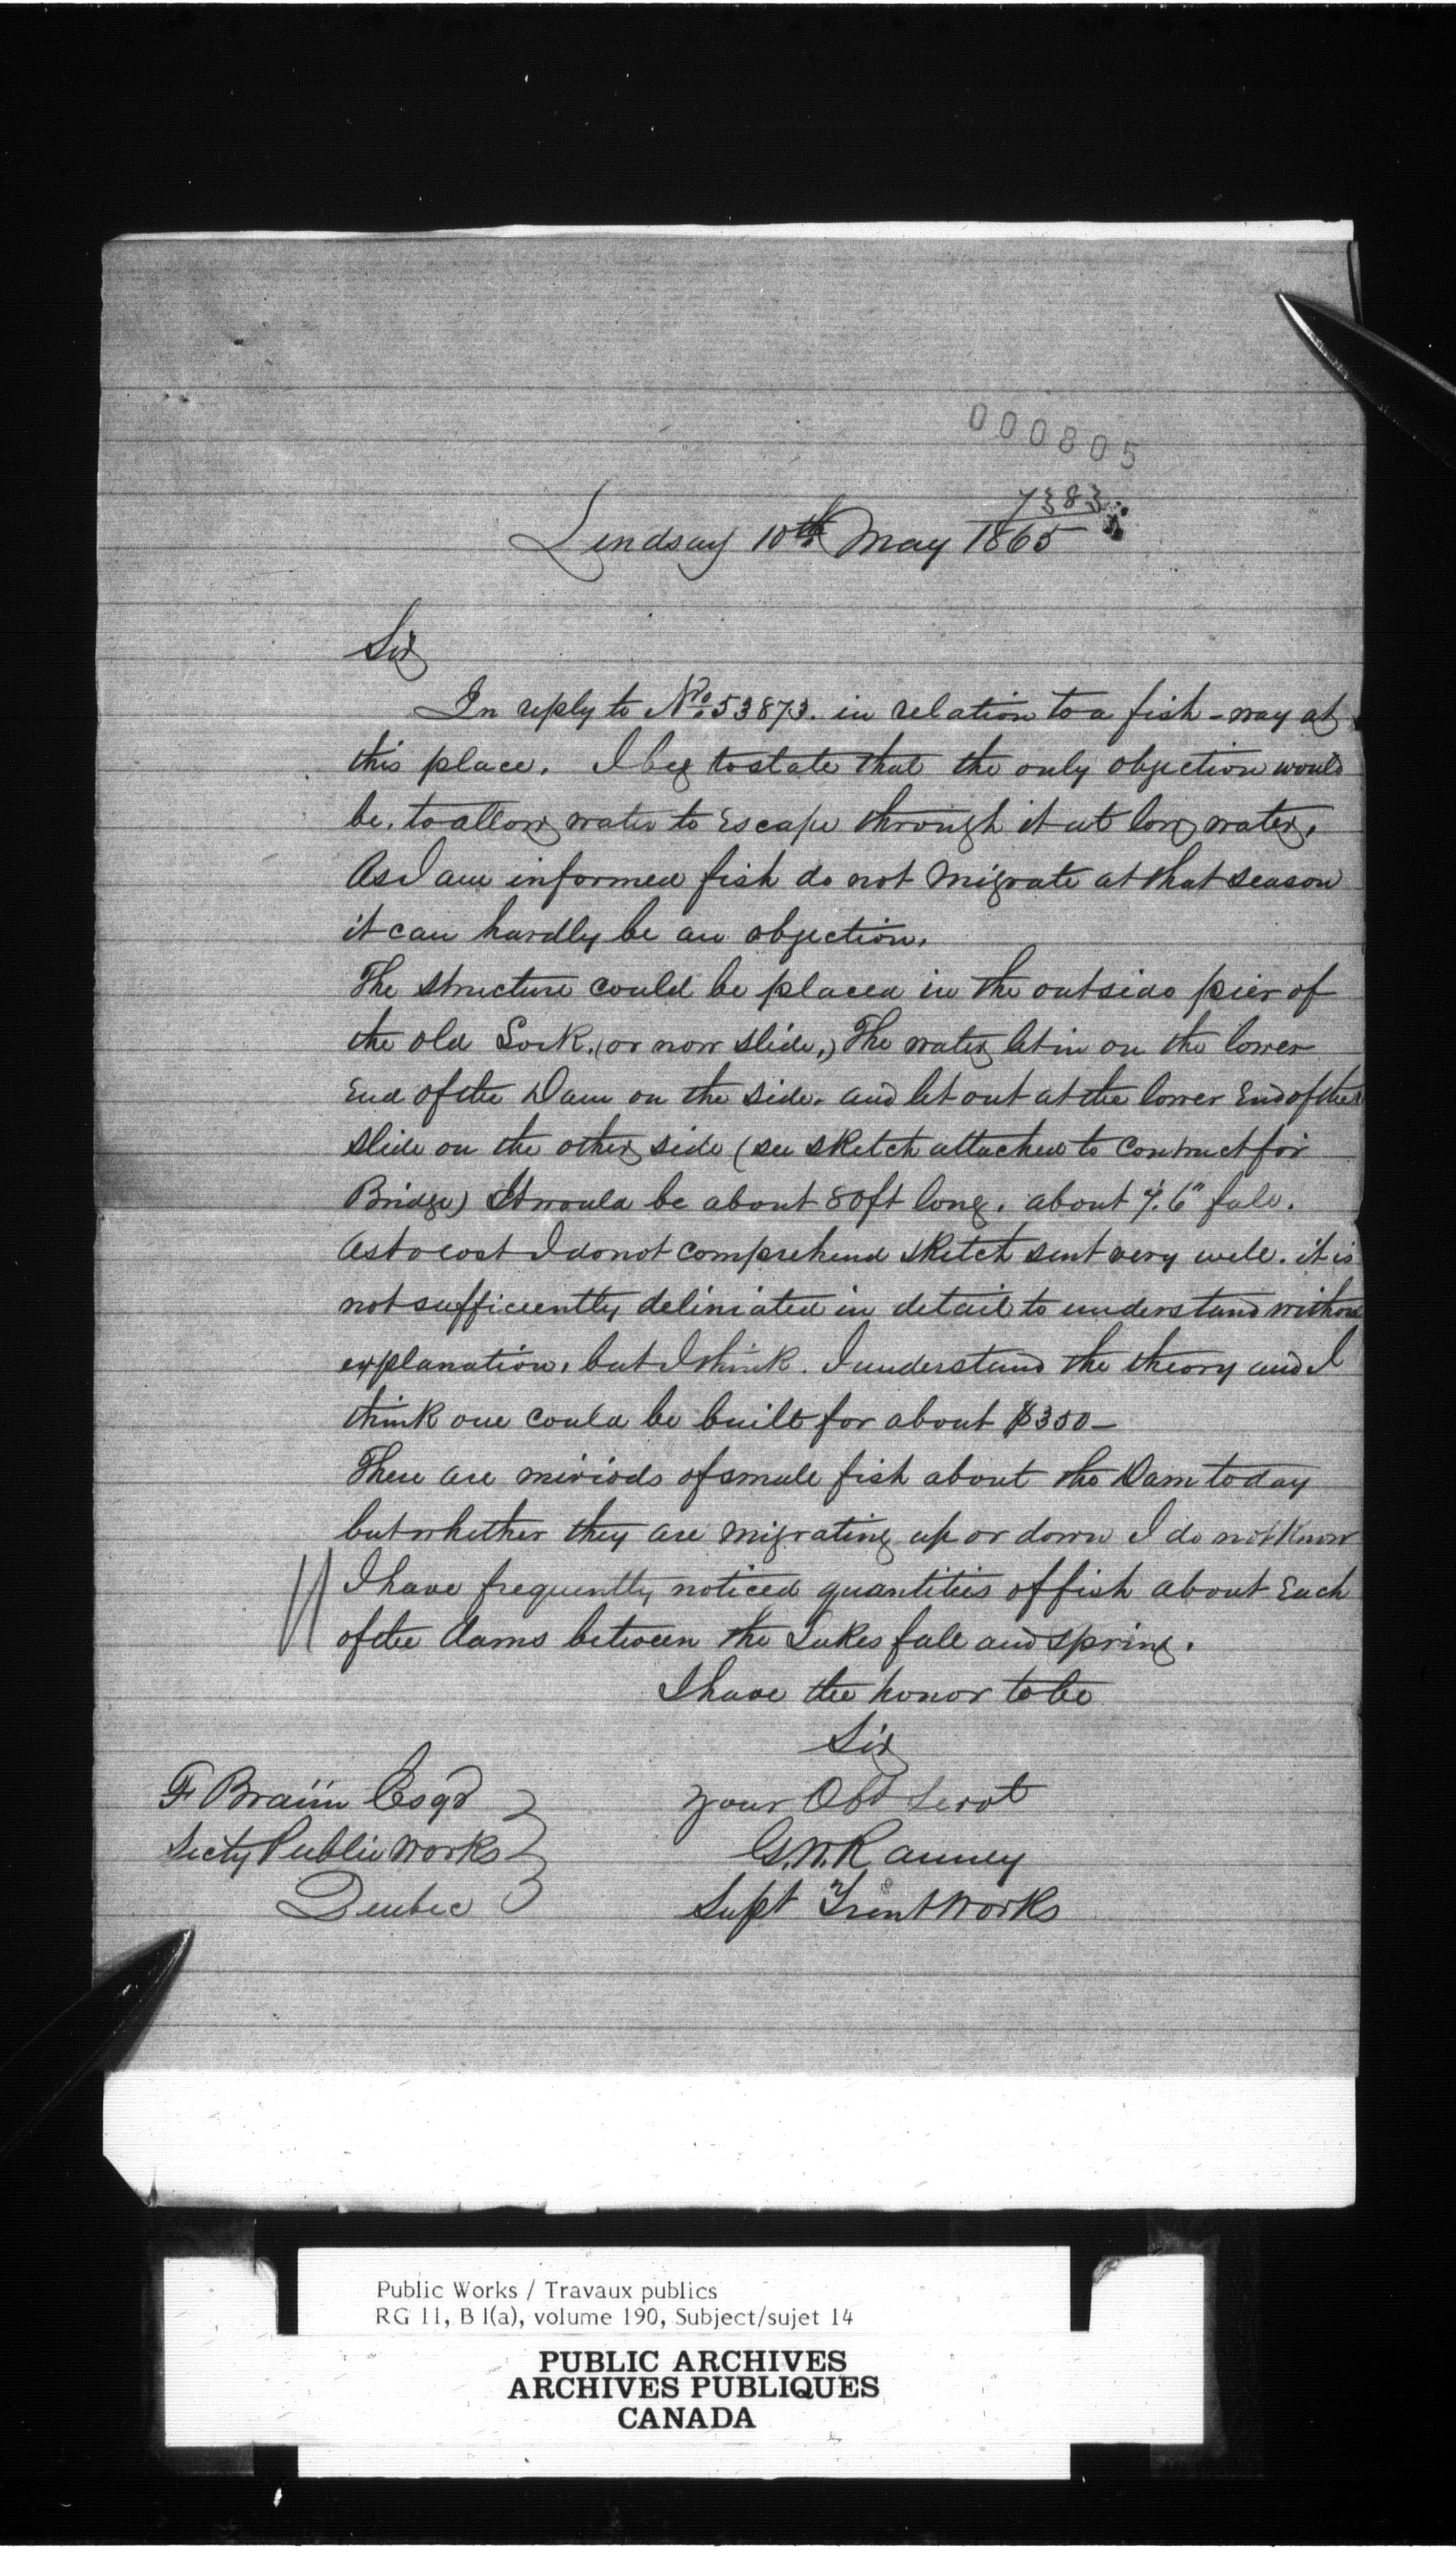 000805
7383
Lindsay 10th May 1865
Sir
In reply to No. 53873. in relation to a fish-way at
this place. I beg to state that the only objection would
be, to allow water to escape through it at low water.
As I am informed fish do not migrate at that season
it can hardly be an objection.
The structure could be placed in the outside pier of
the old Lock, (or now slide,) The water let in on the lower
End of the Dam on the side. and let out at the lower End of the
slide on the other side (see sketch attached to contract for
Bridge) It would be about 80ft long. about 7'.6" fall.
As to cost I do not comprehend sketch sent very well. it is
not sufficiently deliniated in detail to understand without
explanation, but I think. I understand the theory and I
think one could be built for about $350—
There are miriods of small fish about the Dam today
but whether they are migrating up or down I do not Know
I have frequently noticed quantities of fish about Each
of the dams between the Lakes fall and spring.
I have the honor to be
Sir
your Obd Servt
G.W. Ranney
Supt Trent Works
F Braün Esqr
Secty Public Works
Quebec
Public Works / Travaux publics
RG 11, B 1(a), volume 190, Subject/sujet 14
PUBLIC ARCHIVES
ARCHIVES PUBLIQUES
CANADA